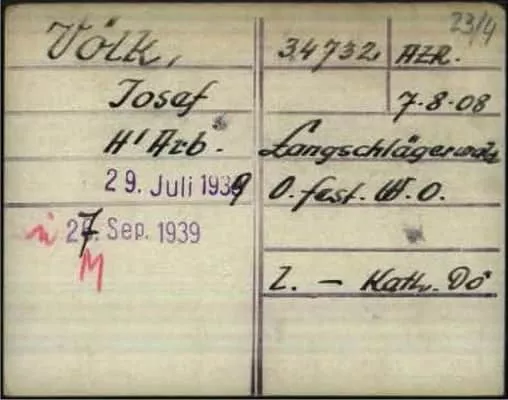 23/4
Völk,
34732 AZR.
Josef
7.8.08
H'Arb.
Langschlägerwald
29. Juli 1939
O. fest. W.O.
27. Sep. 1939
M
l. — Kath. Dö